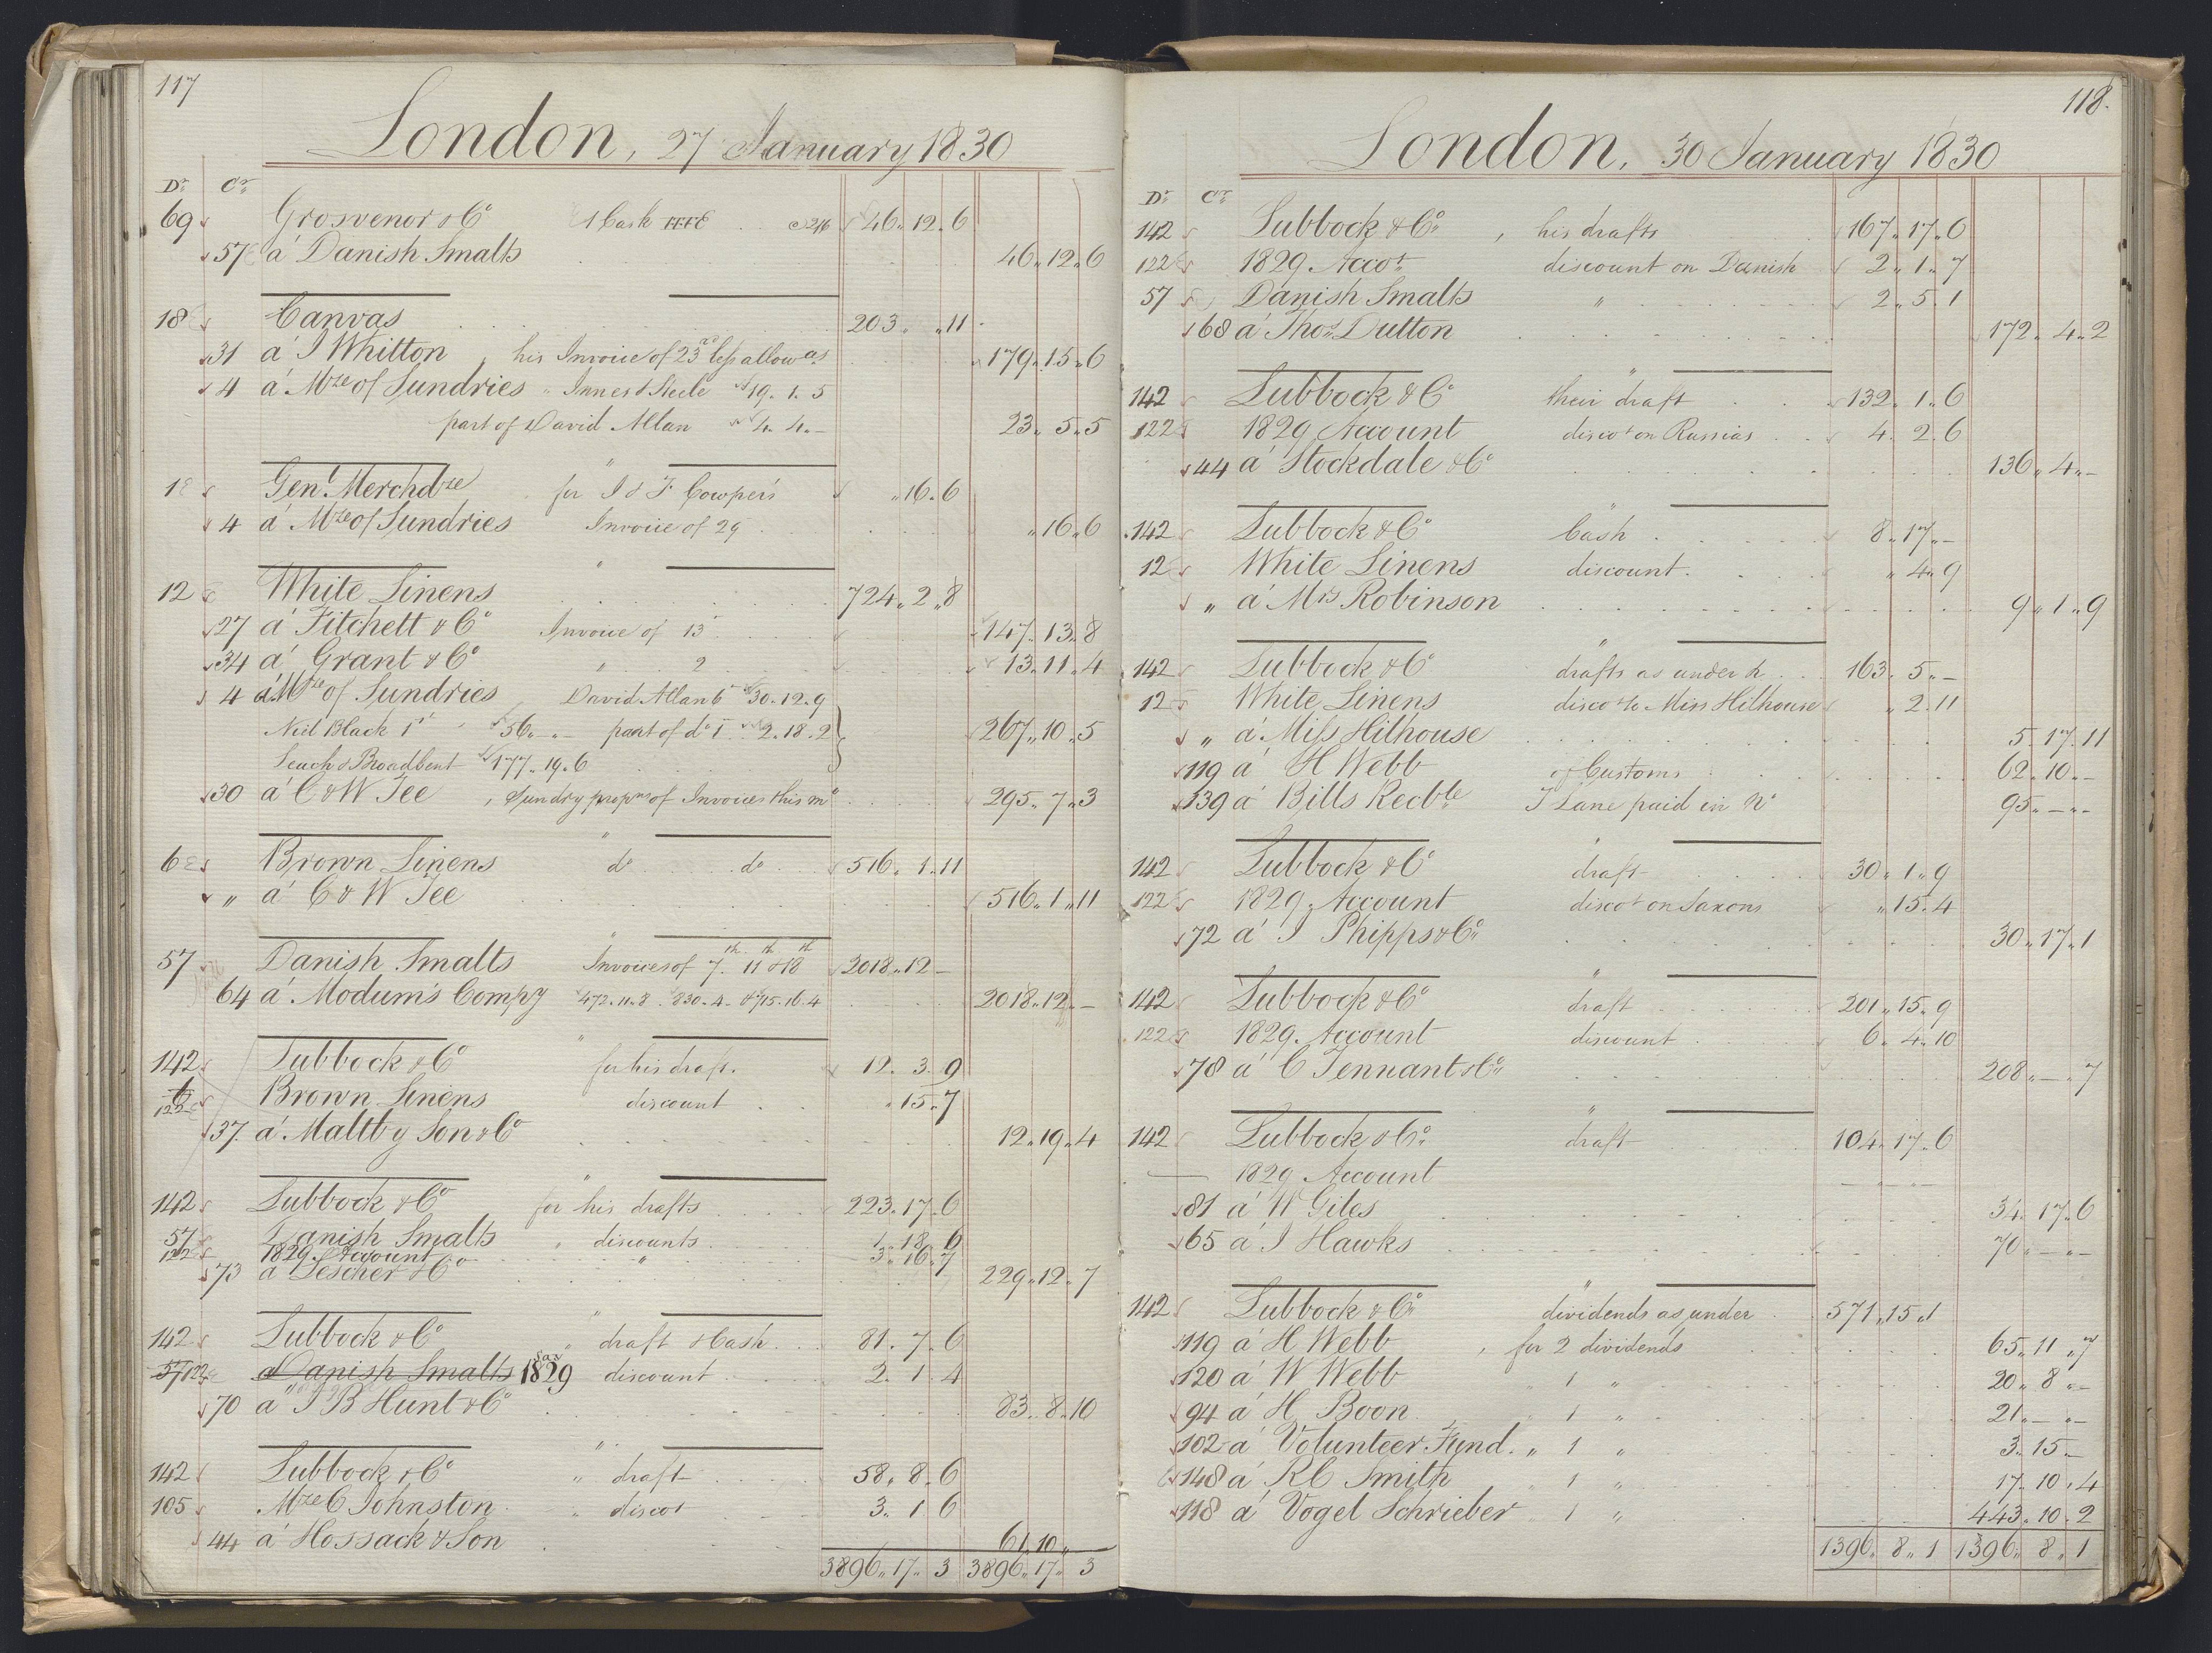 117
London, 27 January 1830
Dr Cr
69 Grosvenor & Co 1 Cask FFFE 46 " 12 " 6
57 a Danish Smalts 46 " 12 " 6
18 Canvas 203 " " 11
31 a J Whitton , his Invoice of 23rd less allowas 179 " 15 " 6
4 a Mze of Sundries " Innes & Steele 19 . 1 . 5
part of David Allan 4 . 4 . –
23 " 5 " 5
"
18 Genl Merchdze for J & F Cowper's " 16 " 6
4 a Mze of Sundries Invoice of 29 " 16 " 6
"
12 White Linens 724 " 2 " 8
27 a Fitchett & Co Invoice of 13 147 " 13 " 8
34 a Grant & Co " 2 13 " 11 " 4
4 a Mze of Sundries David Allan 6 30 . 12 . 9
Neil Black 1st 56 " – part of do 2 . 18 . 2 267 " 10 " 5
Leuch & Broadbent 177 " 19 . 6
30 a C & W Tee , Sundry propns of Invoices this mo 295 " 7 " 3
"
6 Brown Linens do do 516 " 1 " 11
" a C & W Tee 516 " 1 " 11
"
57 Danish Smalts Invoices of 7th 11th & 18th 2018 " 12 –
64 a Modum's Compy 472 . 11 . 8 . 830 . 4 – & 715 . 16 . 4 2018 " 12 " –
"
142 Lubbock & Co for his draft . 12 . 3 . 9
6 122 Brown Linens discount " 15 " 7
37 a Maltby Son & Co 12 " 19 " 4
"
142 Lubbock & Co for his drafts 223 " 17 " 6
57 Danish Smalts " discounts 1 " 18 " 6
122 1829 Account " 3 " 16 " 7
73 a Lescher & Co 229 " 12 " 7
"
142 Lubbock & Co " draft & Cash 81 " 7 " 6
57 122 a Danish Smalts Sax 1829 discount 2 " 1 " 4
70 a J B Hunt & Co 83 " 8 " 10
"
142 Lubbock & Co " draft 58 " 8 " 6
105 Mze C Johnston " discot 3 " 1 " 6
44 a Hossack & Son 61 " 10 "
3896 " 17 " 3 3896 " 17 " 3
118.
London, 30 January 1830
Dr Cr
142 Lubbock & Co , his drafts 167 " 17 " 6
122 1829 Accot discount on Danish 2 " 1 " 7
57 Danish Smalts " 2 " 5 " 1
68 a Thos Dutton 172 " 4 " 2
"
142 Lubbock & Co their draft 132 " 1 " 6
122 1829 Account discot on Russias 4 " 2 " 6
44 a Stockdale & Co 136 " 4 " –
"
142 Lubbock & Co Cash 8 " 17 " –
12 White Linens discount " 4 " 9
" a Mrs Robinson 9 " 1 " 9
"
142 Lubbock & Co drafts as under 163 " 5 " –
12 White Linens discot to Miss Hilhouse " 2 " 11
" a Miss Hilhouse 5 " 17 " 11
119 a H Webb of Customs 62 " 10 " –
139 a Bills Recble J Lane paid in 95 " – " –
"
142 Lubbock & Co draft 30 " 1 " 9
122 1829 Account discot on Saxons " 15 " 4
72 a J Phipps & Co 30 " 17 " 1
"
142 Lubbock & Co draft 201 " 15 " 9
122 1829 Account discount 6 " 4 " 10
78 a C Tennant & Co 208 " – " 7
"
142 Lubbock & Co draft 104 " 17 " 6
— 1829 Account – " – " –
81 a W Giles 34 " 17 " 6
65 a J Hawks 70 " – " –
"
142 Lubbock & Co dividends as under 571 " 15 " 1
119 a H Webb , for 2 dividends 65 " 11 " 7
120 a W Webb " 1 " 20 " 8 " –
94 a H Boon " 1 " 21 " – " –
102 a Volunteer Fund . " 1 " 3 " 15 –
148 a RC Smith " 1 " 17 " 10 " 4
118 a Vogel Schrieber " 1 " 443 " 10 " 2
1396 " 8 " 1 1396 " 8 " 1